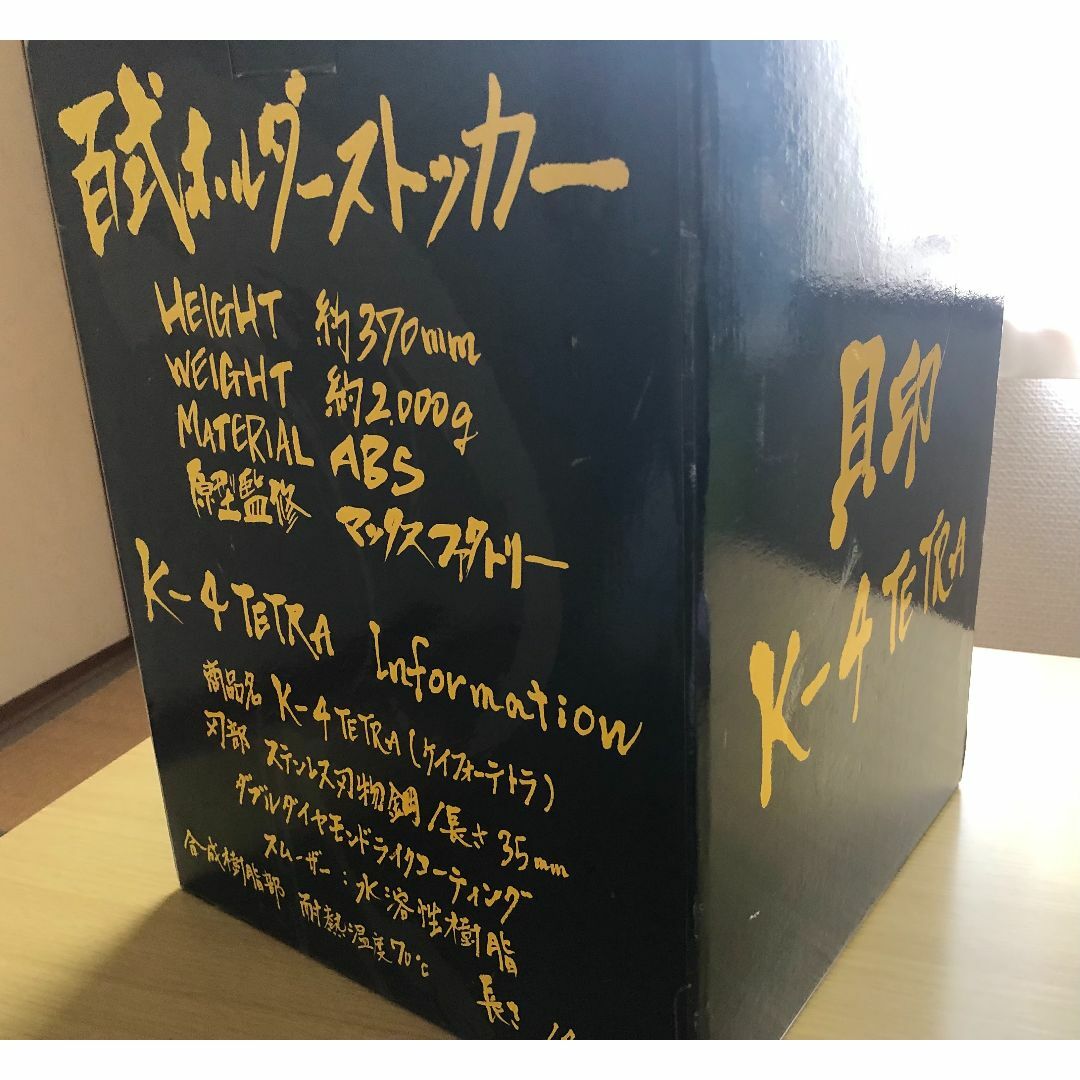 百式ホルダーストッカー
HEIGHT 約370mm
WEIGHT 約2.000g
MATERIAL ABS
原型監修 マックスファクトリー
K-4 TETRA Information
商品名 K-4 TETRA (ケイフォーテトラ)
刃部 ステンレス刃物鋼/長さ35mm
ダブルダイヤモンドライクコーティング
スムーザー:水溶性樹脂
合成樹脂部 耐熱温度70℃
長さ
貝印
K-4 TETRA